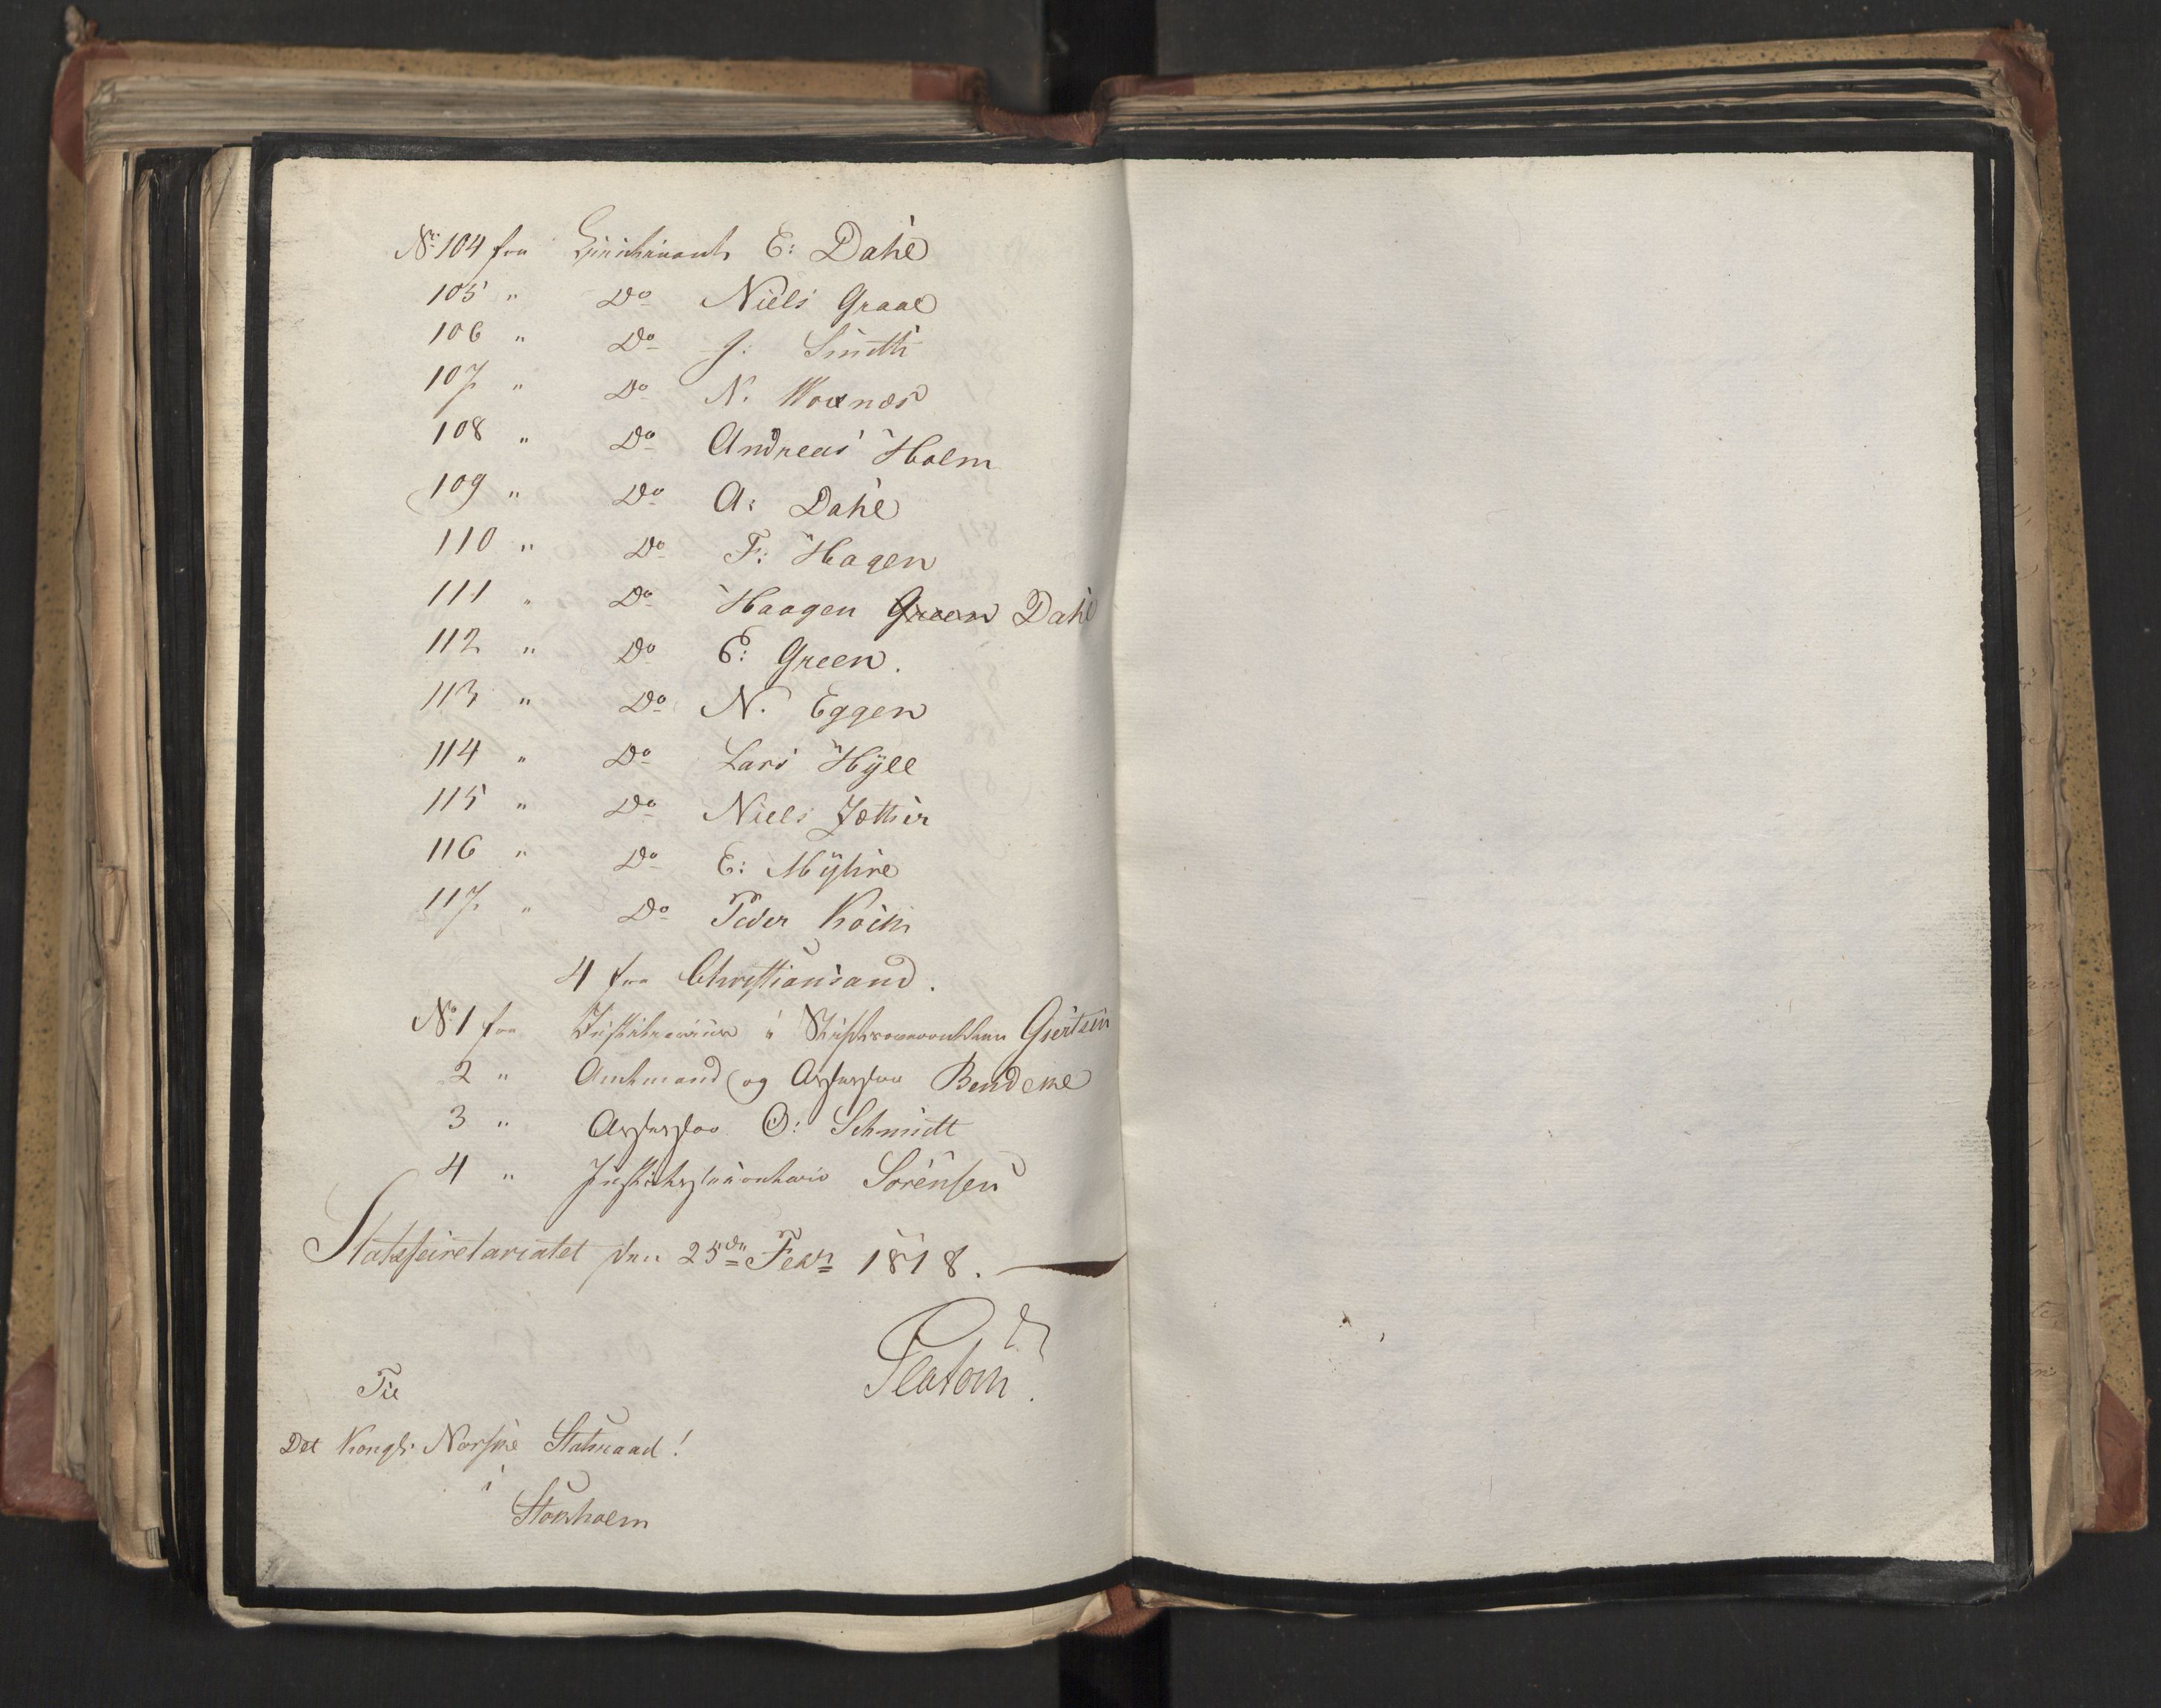 No 104 fra Lieutenant E: Dahl
105 " Do Niels Graae
106 " Do J: Smith
107 " Do N. Woxnæs
108 " Do Andreas Holm
109 " Do A: Dahl
110 " Do F: Hagen
111 " Do Haagen Green Dahl
112 " Do E: Green.
113 " Do N. Eggen
114 " Do Lars Hÿll
115 " Do Niels
116 " Do E: Mÿhre
117 " Do Peder Koch
4 fra Christiansand.
No 1 fra Justitiarius i Stiftsoverretten Giertsen
2 " Amtmand og Assessor Bendeke
3 " Assessor O: Schmidt
4 " Justitssecretair Sørensen
Statssecretariatet den 25de Febr 1818.
Platou
Til
Det Kongl: Norske Statsraad!
i
Stokholm